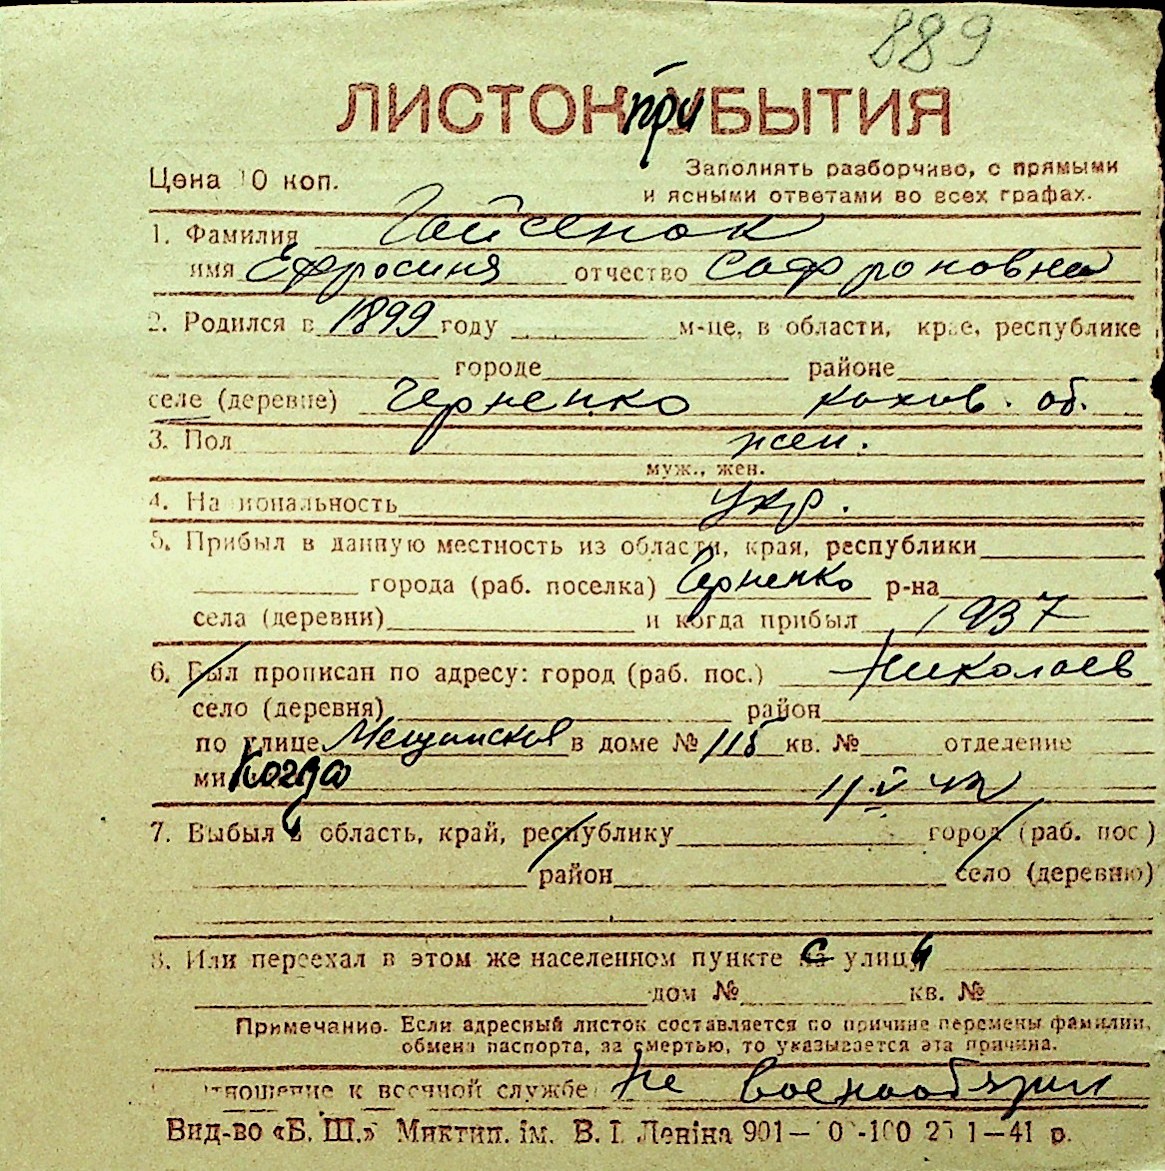 889
ЛИСТОК при УБЫТИЯ
Цена 10 коп.
Заполнять разборчиво, с прямыми
и ясными ответами во всех графах.
1. Фамилия Гайсенок
имя Ефросиня отчество Софроновна
2. Родился в 1899 году м-це, в области, крае, республике
городе районе
селе (деревне) Черненко об.
3. Пол жен.
муж., жен.
4. Национальность укр.
5. Прибыл в данную местность из области, края, республики
города (раб. поселка) Черненко р-на
села (деревни) и когда прибыл 1937
6. Был прописан по адресу: город (раб. пос.) Николаев
село (деревня) район
по улице Мещанской в доме № 115 кв. № отделение
ми Когда 11.V 42
7. Выбыл в область, край, республику город (раб. пос.)
район село (деревню)
8. Или переехал в этом же населенном пункте с улицы
дом № кв. №
Примечание. Если адресный листок составляется по причине перемены фамилии,
обмена паспорта, за смертью, то указывается эта причина.
Отношение к военной службе Не военнообязан
Вид-во «Б. Ш.» Миктип. ім. В. І. Леніна 901— 1—41 р.